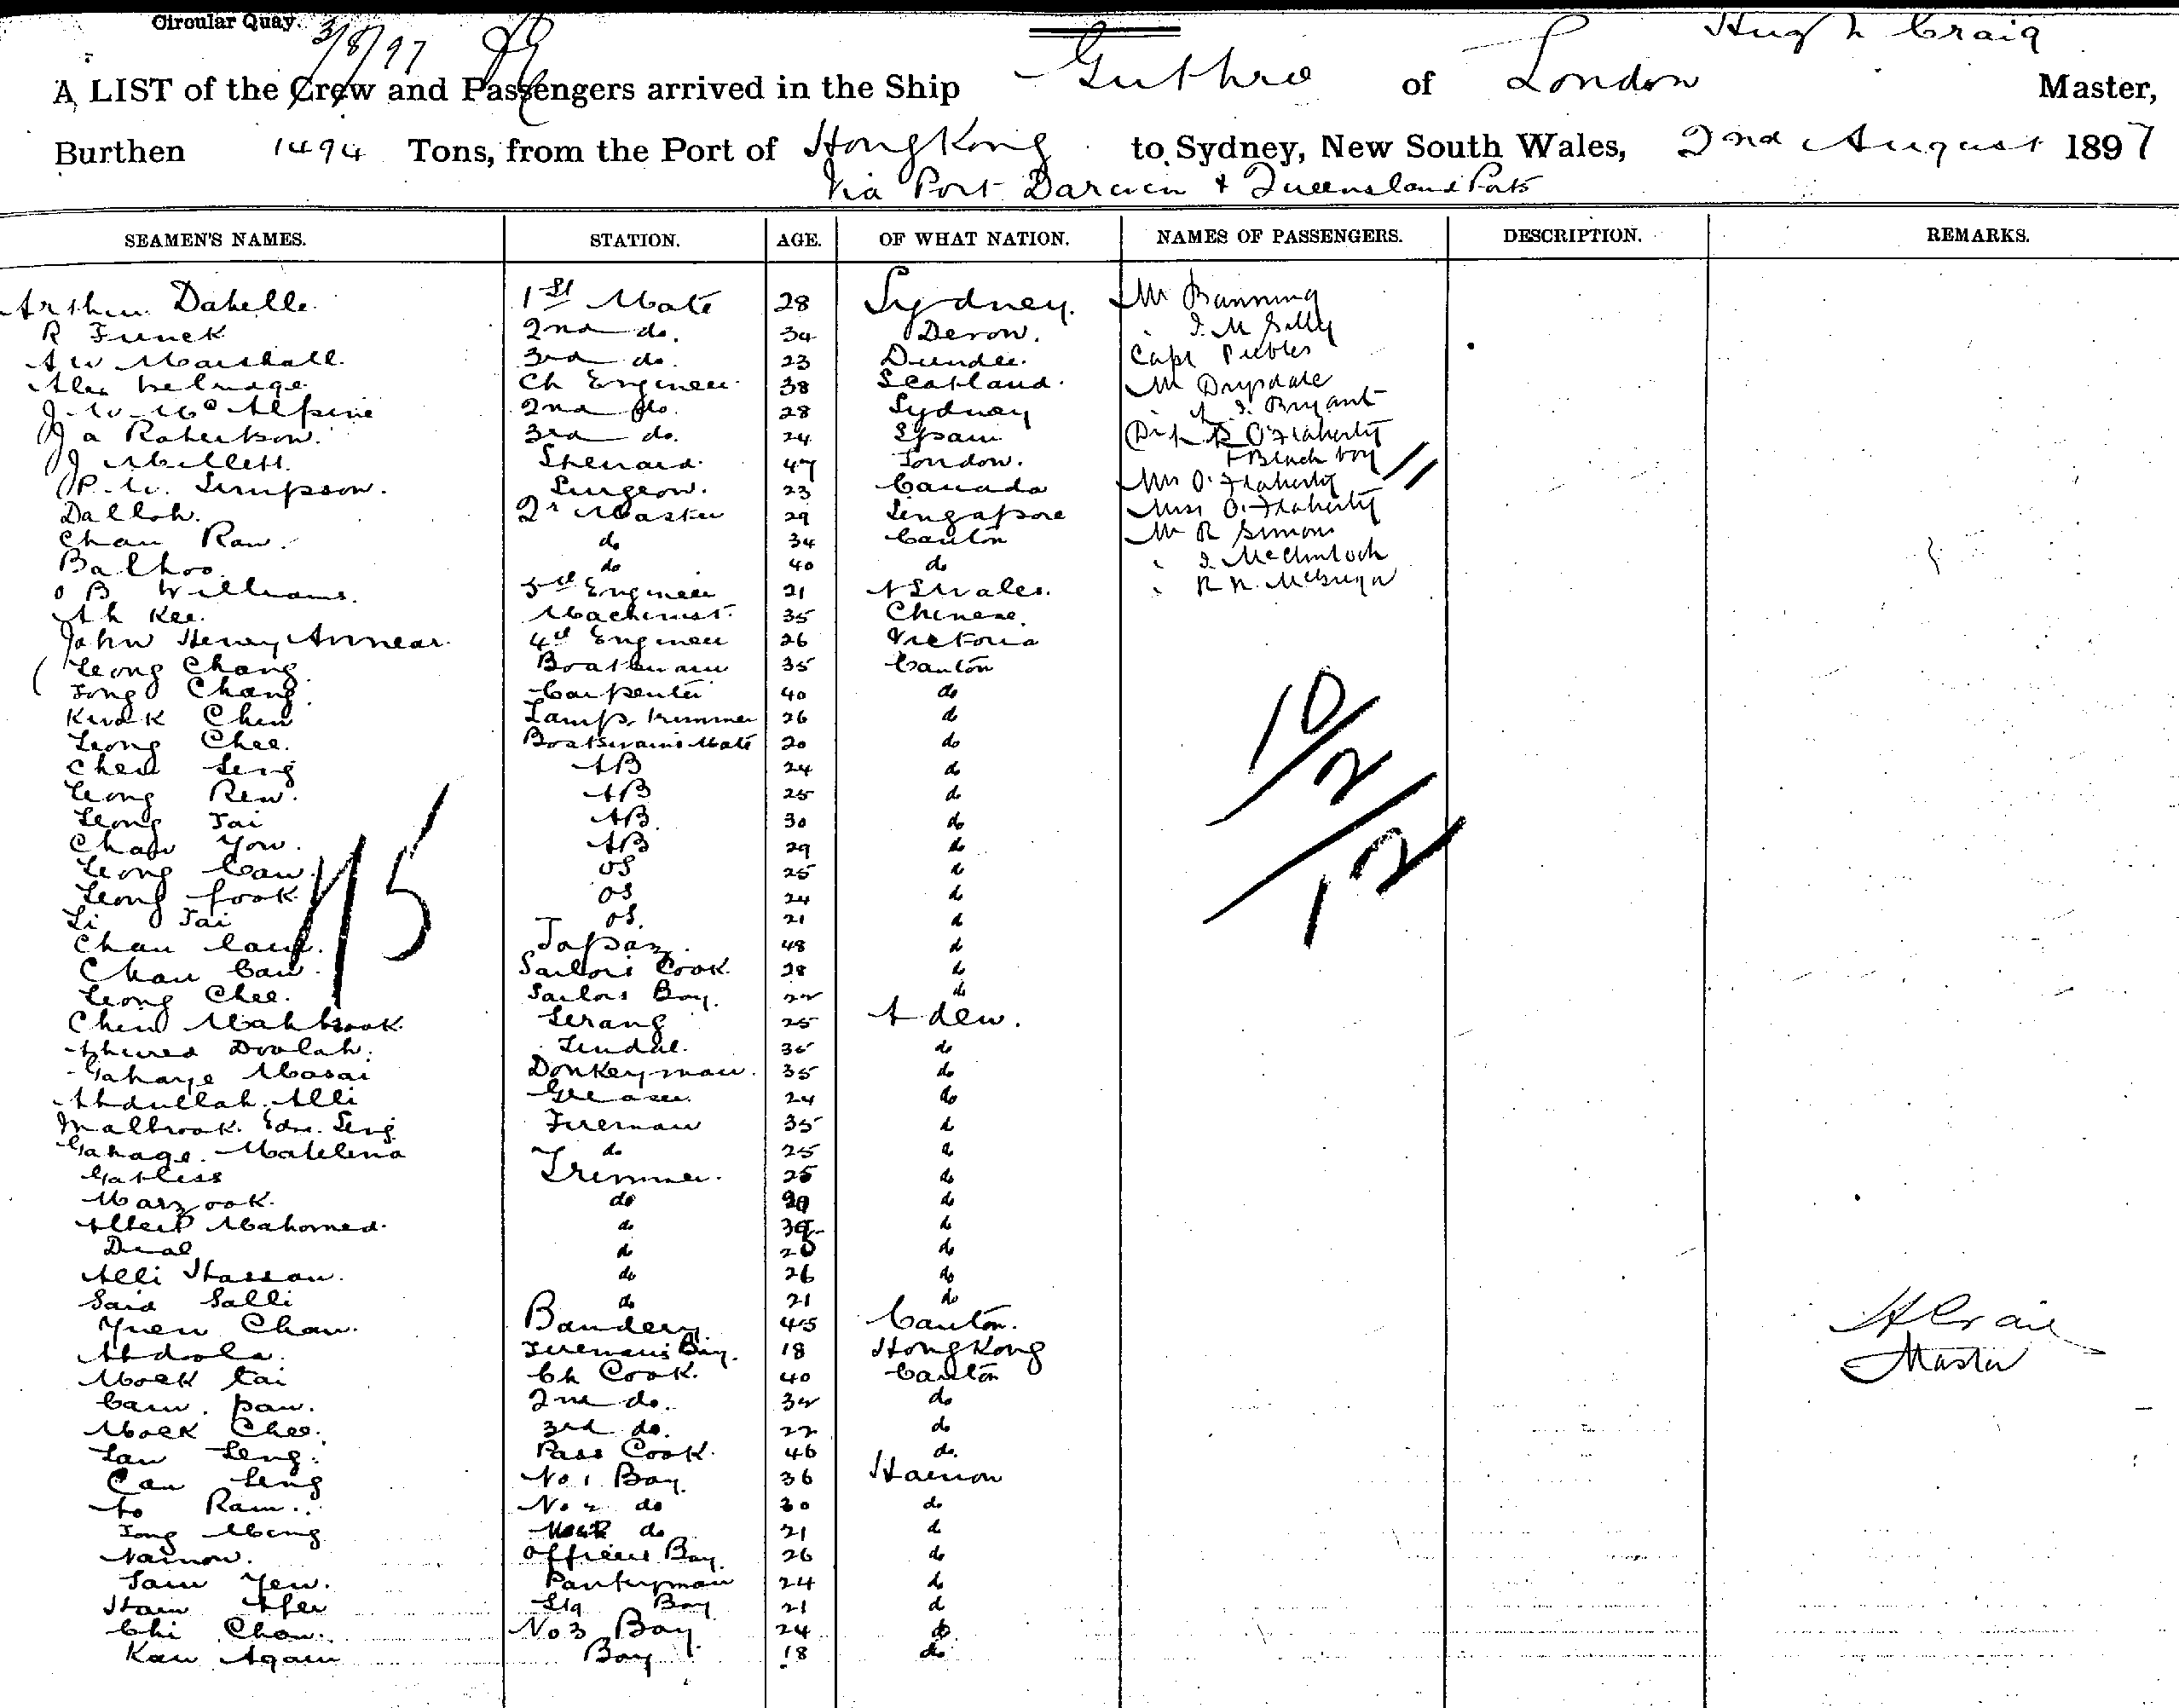 Circular Quay.
3/8/97
Hugh Craig
A LIST of the Crew and Passengers arrived in the Ship Guthrie of London Master,
Burthen 1494 Tons, from the Port of HongKong to Sydney, New South Wales, 2nd August 1897
Via Port Darwin & Queensland Ports
SEAMEN'S NAMES. STATION. AGE. OF WHAT NATION. NAMES OF PASSENGERS. DESCRIPTION. REMARKS.
Arthur Dabelle. 1st Mate 28 Sydney. Mr Banning
R Funck 2nd do. 34 Devon.
A W Marshall. 3rd do. 23 Dundee. Capt Peebles
Alex Ch Engineer. 38 Scotland. Mr Drysdale
J. W. McAlpine 2nd do. 28 Sydney Bryant
J a Robertson. 3rd do. 24 Spain O'Flaherty
J Millett. Steward. 47 London. + Black boy 11
P. W. Simpson. Surgeon. 23 Canada Mrs O'Flaherty
Dalloh. Qr Master 29 Singapore Miss O'Flaherty
Chan Raw. do 34 Canton Mr R Simon
Balhoo. do 40 do " J. McClintock
O B Williams. 5th Engineer 21 N S Wales. " R N.
Ah Kee. Machinist. 35 Chinese.
John Henry Annear. 4th Engineer 26 Victoria
Leong Chang. Boatswain 35 Canton
Fong Chang. Carpenter 40 do
Kwok Chin Lamp trimmer 26 do
Leong Chee. Boatswains Mate 20 do
Chen Seng AB 24 do
Leong Rew. AB 25 do
Leong Tai AB. 30 do
Chan You. AB 29 do
Leong Caw. OS 25 do
Leong fook OS 24 do
Li Tai OS. 21 do
Chan Topaz. 48 do
Chan Caw. Sailors Cook. 28 do
Leong Chee. Sailors Boy. 22 do
75
10/2/12
Chin Mahbrook. Serang 25 Aden.
Doolah. Tindal. 35 do
Gahaye Masai Donkeyman. 35 do
Abdullah Alli Greaser 24 do
Malbrook. Edn. Seng Fireman 35 do
Gahage. Matelena do 25 do
Gabless Trimmer. 25 do
Marzook. do 30 do
Albert Mahomed. do do
Dual do 20 do
Alli Hassan. do 26 do
Said Salli do 21 do
Yuen Chan. 45 Canton.
Abdoola. Firemans Boy. 18 HongKong
Moek tai Ch Cook. 40 Canton
Cam. paw. 2nd do. 32 do
Moek Chee. 3rd do. 22 do
Lan Seng. Pass Cook. 46 do.
Can Seng No 1 Boy. 36 Hainon
Fo Ram. No 2 do 30 do
Fong Meng do 21 do
Nainon. Officers Boy. 26 do
Sam Yew. Pantryman 24 do
Ham Afee Boy 21 do
Chi Chow. No 3 Boy 24 do
Kan Again Boy 18 do
H Craig
Master